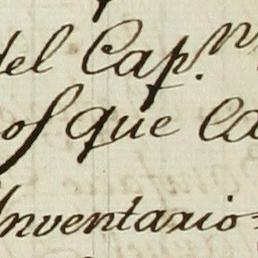 del Cap.n
os que ca
Inventario